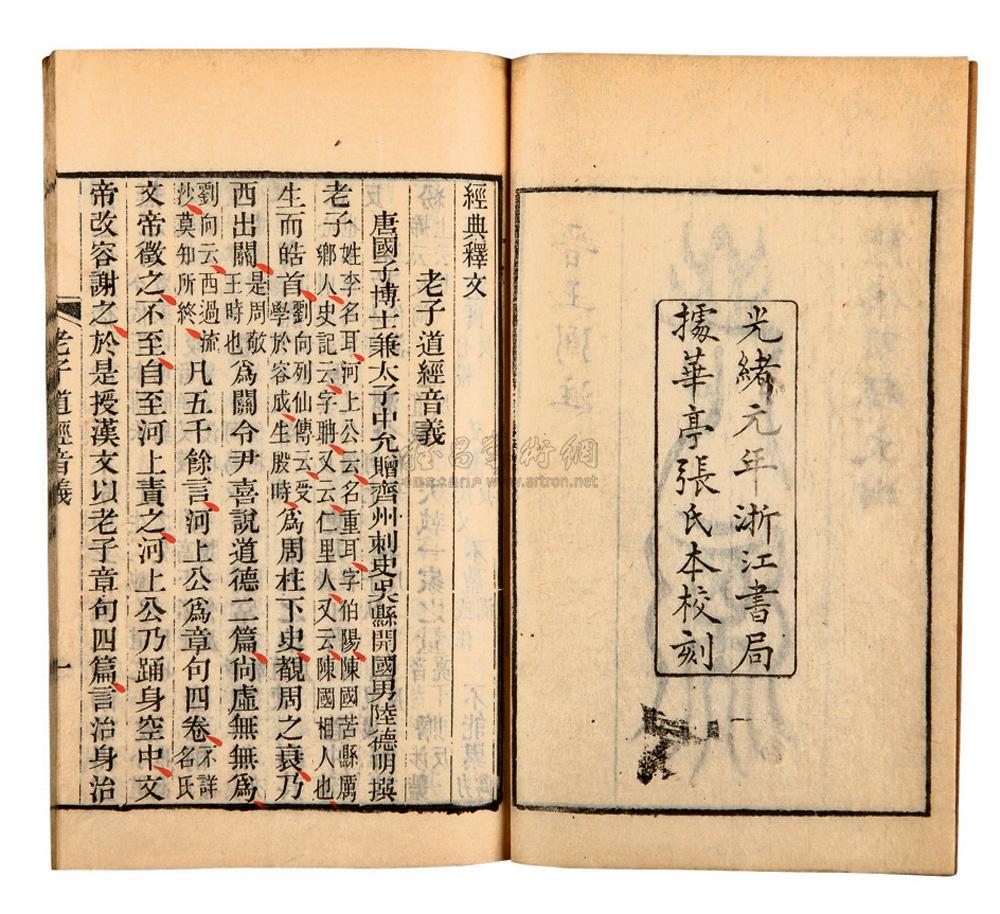 光緒元年浙江書局
據華亭張氏本校刻
經典釋文
老子道經音義
唐國子博士兼太子中允贈齊州刺史吳縣開國男陸德明撰
老子姓李名耳河上公云名重耳字伯陽陳國苦縣厲
鄉人史記云字聃又云仁里人又云陳國相人也
生而皓首劉向列仙傳云受
學於容成生殷時為周柱下史覩周之衰乃
西出關是周敬
王時也為關令尹喜說道德二篇尙虛無無為
劉向云西過流
沙莫知所終凡五千餘言河上公為章句四卷不詳
名氏
文帝徵之不至自至河上責之河上公乃踊身空中文
帝改容謝之於是授漢文以老子章句四篇言治身治
老子道經音義
一
www.artron.net